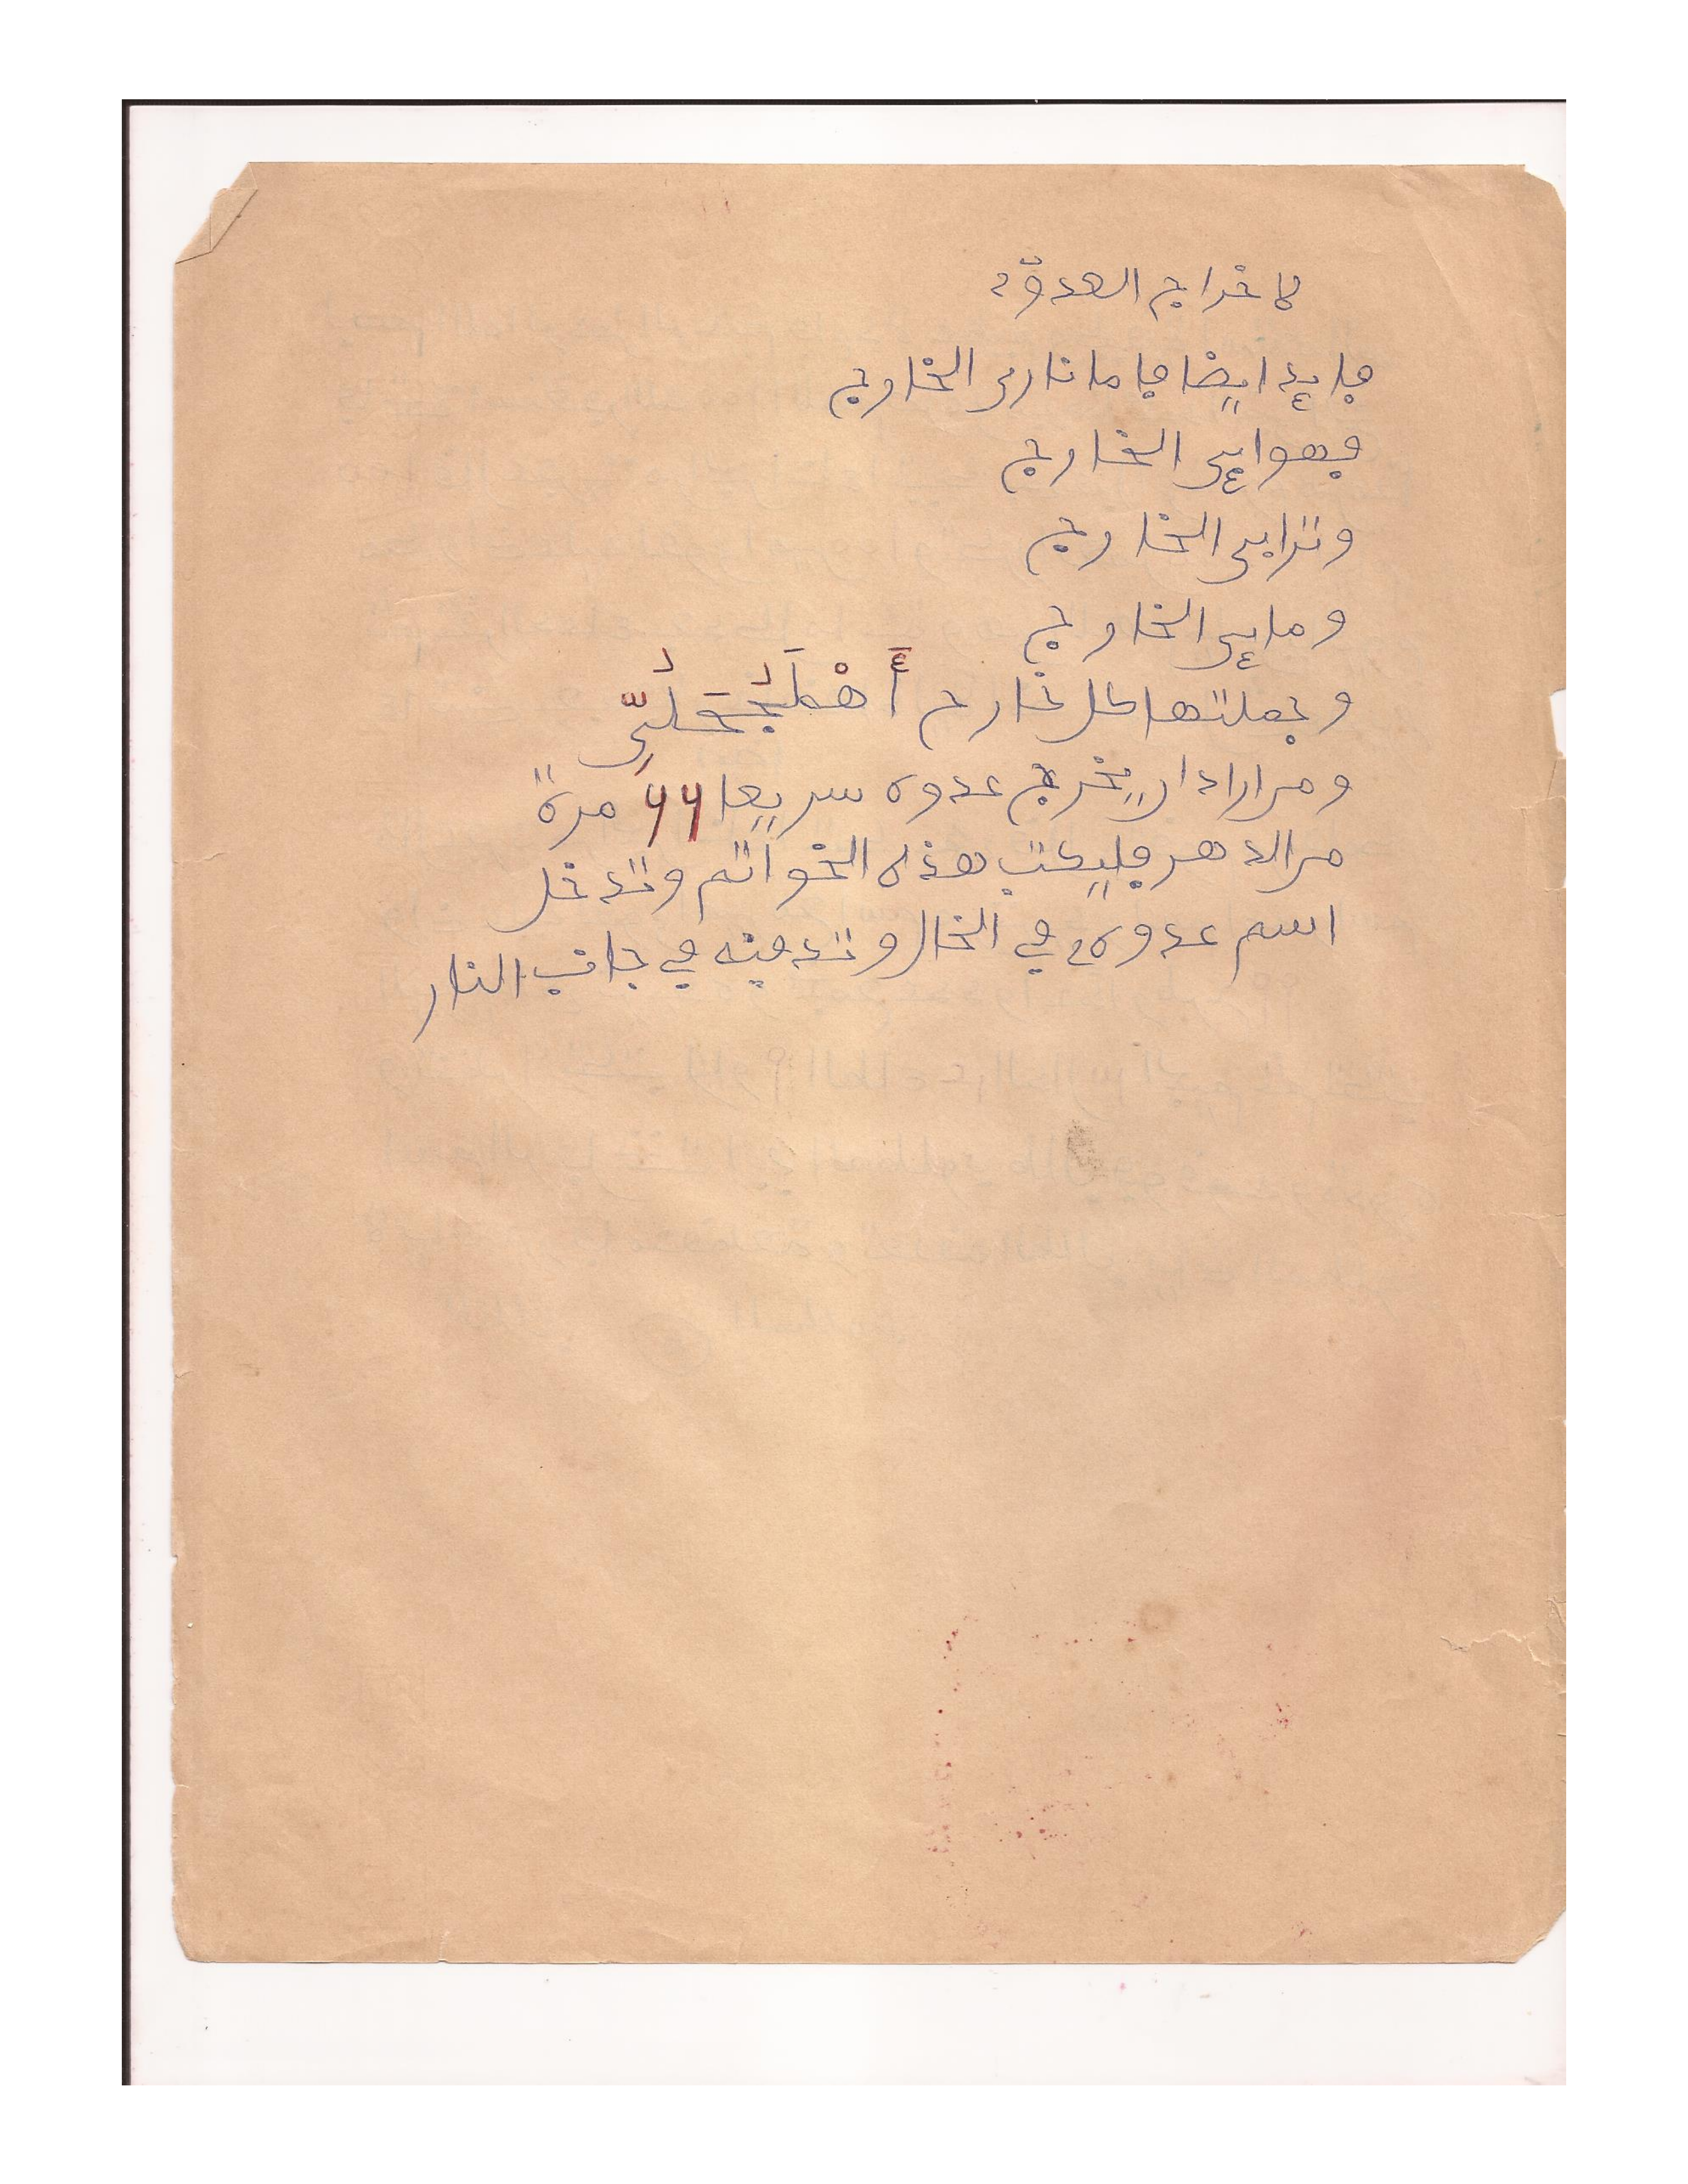 لاخراج العدوّ
فايدة ايضا فاما نارى الخارج
فهواءى الخارج
وترابى الخارج
وماءى الخارج
وجعلتها كل خارج
ومن اراد ان يخرج عدوه سريعا 66 مرة
من الدهر فليكتب هذه الخواتم وتدخل
اسم عدوه في الخال وتدفينه في جانب النار